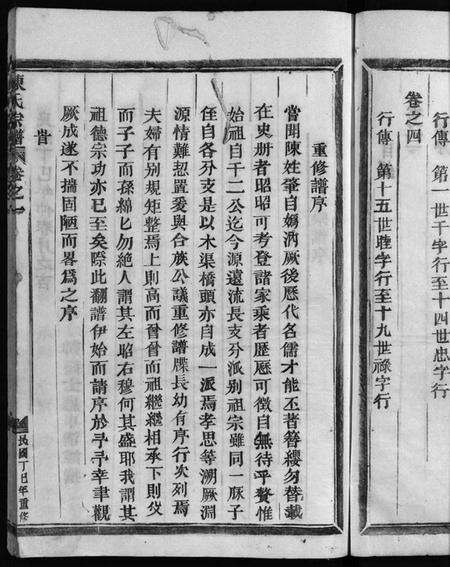 行傳　第一世千字行至十四世忠字行
卷之四
行傳　第十五世睦字行至十九世祿字行
重修譜序
嘗聞陳姓肇自媯汭厥後歷代名儒才能丕著簪纓勿替載
在史册者昭昭可考登諸家乘者歷歷可徵自無待乎贅惟
始祖自千二公迄今源遠流長支分派别祖宗雖同一脉子
侄自各分支是以木渠橋頭亦自成一派焉孝思等溯厥淵
源情難恝置爰與合族公議重修譜牒長幼有序行次列焉
夫婦有别規矩整焉上則高而曾曾而祖繼繼相承下則父
而子子而孫綿綿勿絶人謂其左昭右穆何其盛耶我謂其
祖德宗功亦已至矣際此翻譜伊始而請序於予予幸聿觀
厥成遂不揣固陋而畧爲之序
旹
陳氏宗譜　卷之一
民國丁巳年重修